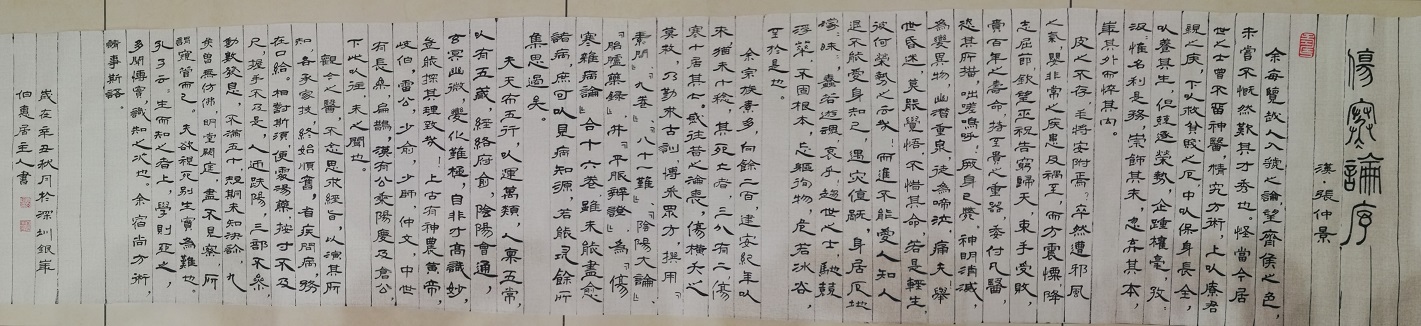 傷寒論序
漢 張仲景
余每覽越人入虢之診望齊侯之色，
未嘗不慨然歎其才秀也。怪當今居
世之士曾不留神醫，精究方術，上以療君
親之疾，下以救貧賤之厄，中以保身長全，
以養其生，但競逐榮勢，企踵權豪，孜
汲惟名利是務，崇飾其末，忽弃其本，
華其外而悴其内。
皮之不存，毛將安附焉。卒然遭邪風
之氣，嬰非常之疾，患及禍至，而方震慄，降
志屈節，欽望巫祝，告窮歸天，束手受敗，
賫百年之壽命，持至貴之重器，委付凡醫，
恣其所措，咄嗟嗚呼！厥身已斃，神明消滅，
為變異物，幽潛重泉，徒為啼泣，痛夫！舉
世昏迷，莫能覺悟，不惜其命，若是輕生，
彼何榮勢之云哉！而進不能愛人知人
退不能愛身知己，遇災值禍，身居厄地
昧，蠢若遊魂，哀乎！趨世之士，馳競
浮華，不固根本，忘軀徇物，危若冰谷，
至於是也。
余宗族素多，向餘二百，建安紀年以
來，猶未十稔，其死亡者，三分有二，傷
寒十居其七。感往昔之淪喪，傷橫夭之
莫救，乃勤求古訓，博采衆方，撰用『
素問』『九卷』『八十一難』、『陰陽大論』
『胎臚藥錄』，并『平脈辨證』，為『傷
寒雜病論』合十六卷，雖未能盡愈
諸病，庶可以見病知源，若能尋余所
集思過矣。
夫天布五行，以運萬類，人稟五常，
以有五藏，經絡府俞，陰陽會通，
玄冥幽微，變化難極，自非才高識妙，
豈能探其理致哉！上古有神農黃帝，
岐伯，雷公，少俞，少師，仲文，中世
有長桑，扁鵲，漢有公乘陽慶及倉公，
下此以往，未之聞也。
觀今之醫，不念思求經旨，以演其所
知，各承家技，終始順舊，省疾問病，務
在口給。相對斯須，便處湯藥，按寸不及
尺，握手不及足，人迎趺陽，三部不參，
動數發息，不滿五十，短期未知決診，九
候曾無彷彿，明堂闕庭，盡不見察，所
謂窺管而已。夫欲視死別生實為難也
孔子云：生而知之者上，學則亞之，
多聞博識，知之次也。余宿尚方術，
請事斯語。
歲在辛丑秋月於深圳銀
居主人書